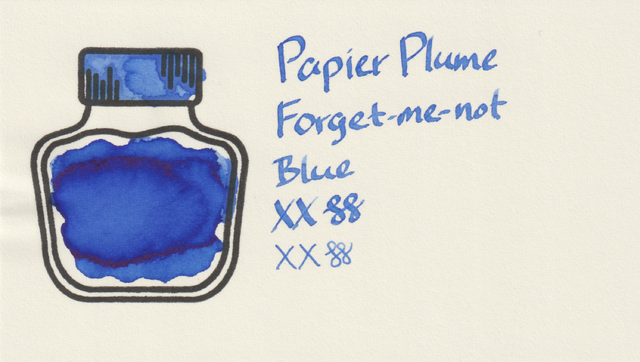 Papier Plume
Forget-me-not
Blue
XX 88
XX 88